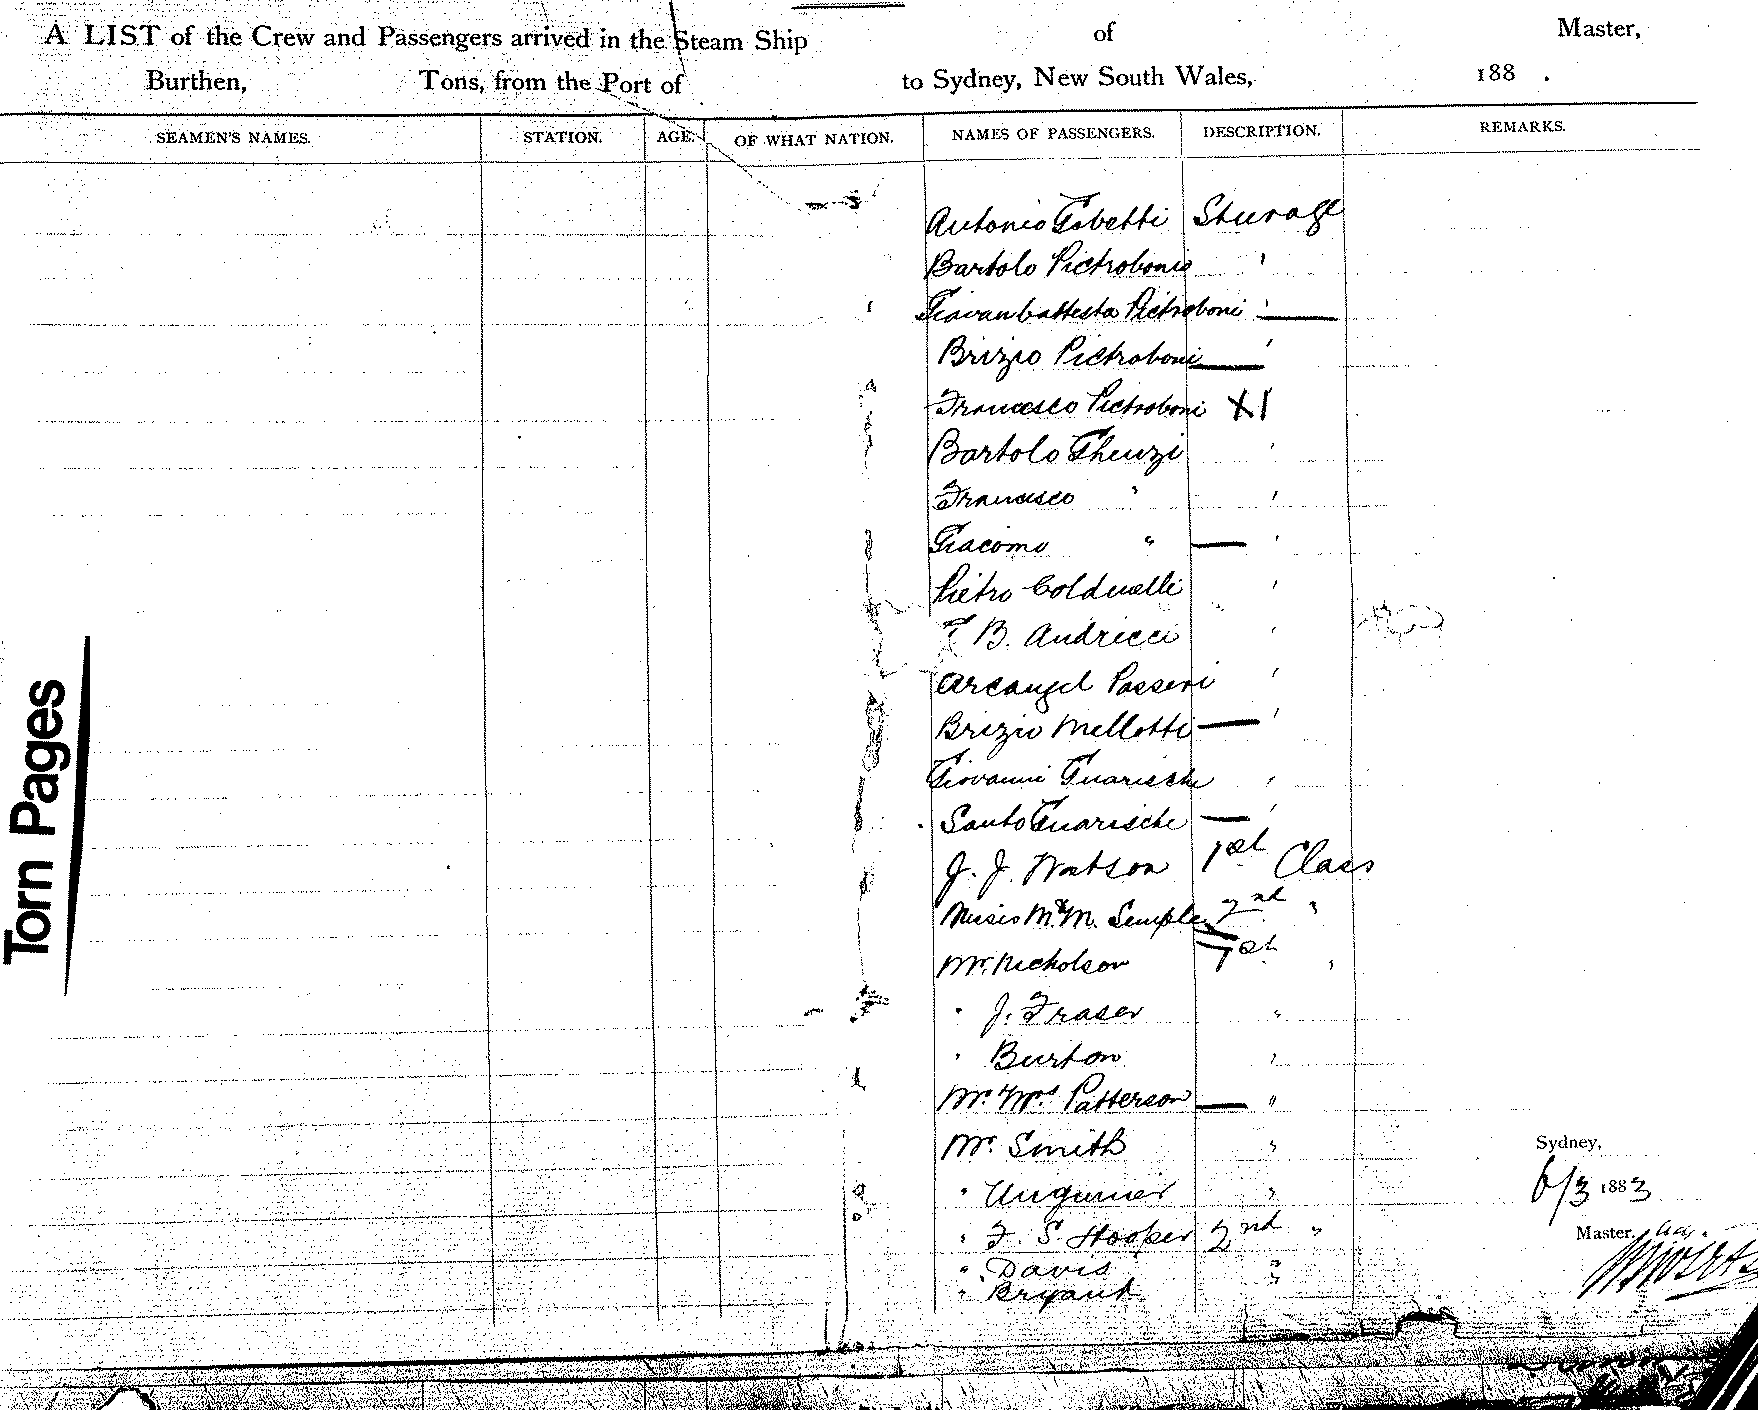 A LIST of the Crew and Passengers arrived in the Steam Ship of Master,
Burthen, Tons, from the Port of to Sydney, New South Wales, 188 .
SEAMEN'S NAMES. STATION. AGE. OF WHAT NATION. NAMES OF PASSENGERS. DESCRIPTION. REMARKS.
Antonio Gobetti Sturage
Bartolo Pietroboni '
Giovanbattesta Pietroboni '
Brizio Pietroboni '
Francesco Pietroboni X1
Bartolo Ghenzi '
Francesco " '
Giacomo " '
Pietro '
G B. Andricci '
Arcangel Passeri '
Brizio Mellotti '
Giovanni Guarische '
Santo Guarische '
J. J. Watson 1st Class
Misses M & M. Semple 2nd "
Mr. Nicholson 1st "
" J. Fraser "
" Burton "
Mr. Mrs Patterson "
Mr. Smith "
" "
" F. S. Hooper 2nd "
" Davis "
" Bryant "
Sydney,
6/3 1883
Master,
Torn Pages